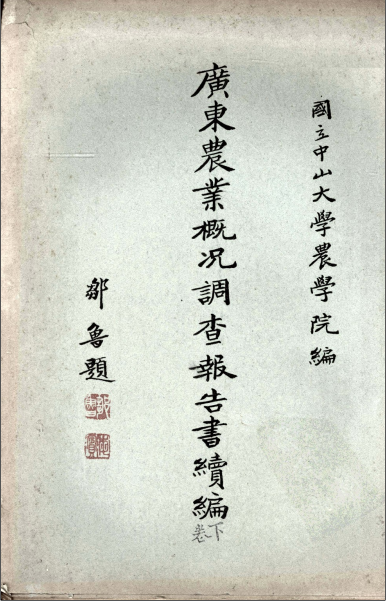 國立中山大學農學院編
廣東農業概況調查報告書續編
卷下
鄒魯題